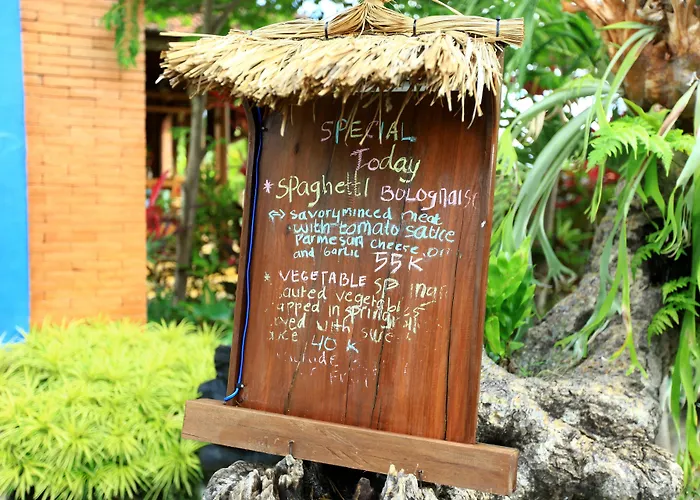 SPECIAL
Today
* Spaghetti BOLOGNAISE
⇔ savory minced meat
with tomato sauce
Parmesan cheese, oil
and Garlic 55K
* VEGETABLE SPRING
vegetables
in springroll
with
40 K